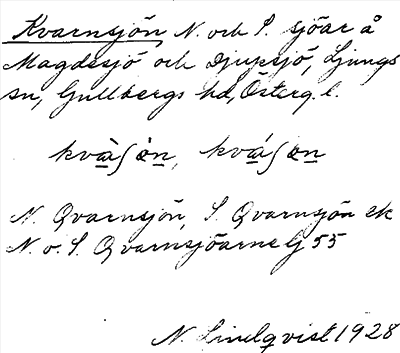 Kvarnsjön N. och S. sjöar å
Magdesjö och Djupsjö, Ljungs
sn, Gullbergs hd, Österg. l.
kvàʃön, kváʃön
N. Qvarnsjön, S. Qvarnsjön ek
N. o. S. Qvarnsjöarne Gj 55
N. Lindqvist 1928